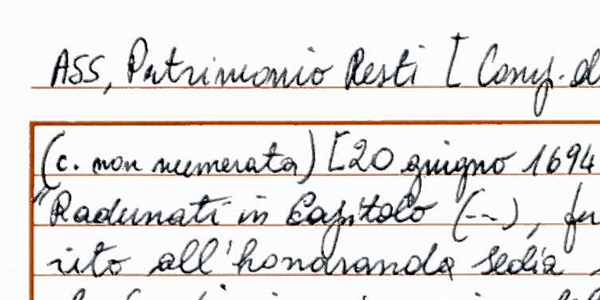 ASS, Patrimonio Resti [ Comp. d
(c. non numerata) [20 giugno 1694
"Radunati in Capitolo (--), fu
rito all'honoranda sedia